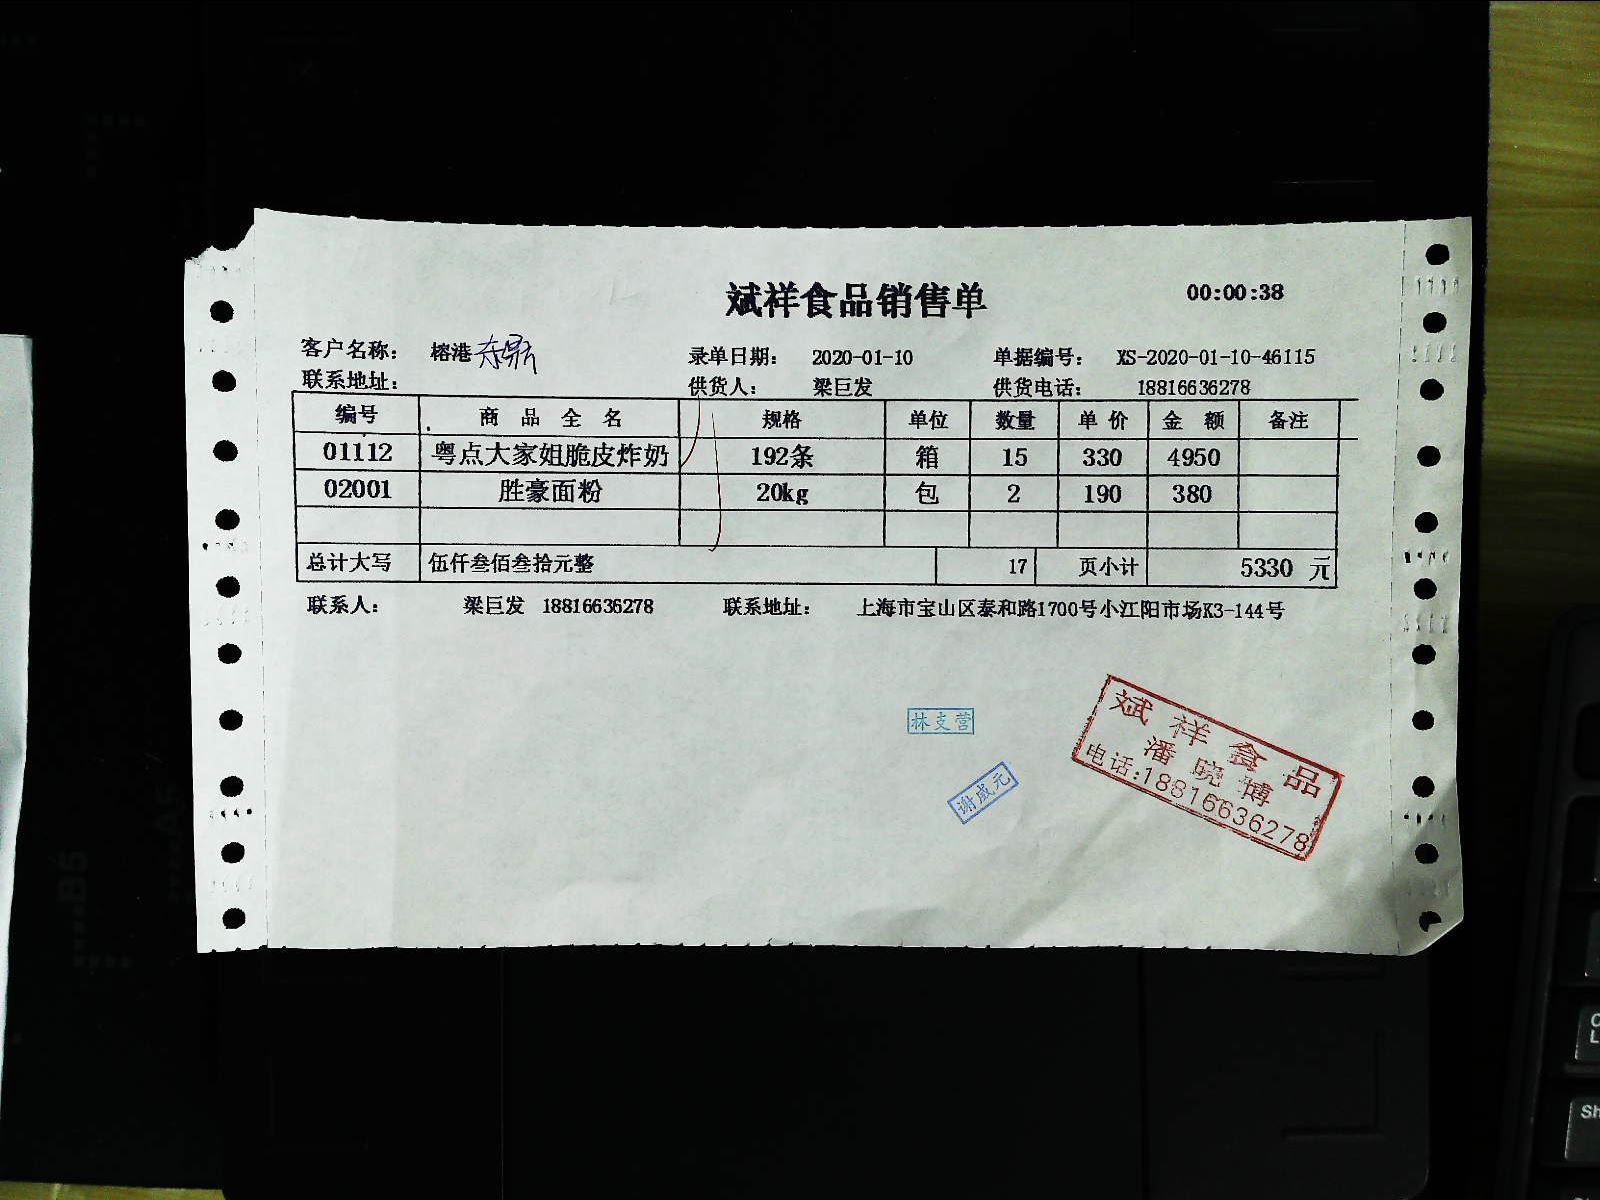 斌祥食品销售单 00:00:38
客户名称： 榕港 录单日期： 2020-01-10 单据编号： XS-2020-01-10-46115
联系地址： 供货人： 梁巨发 供货电话： 18816636278
编号 商品全名 规格 单位 数量 单价 金额 备注
01112 粤点大家姐脆皮炸奶 192条 箱 15 330 4950
02001 胜豪面粉 20kg 包 2 190 380
总计大写 伍仟叁佰叁拾元整 17 页小计 5330 元
联系人： 梁巨发 18816636278 联系地址： 上海市宝山区泰和路1700号小江阳市场K3-144号
林支营
谢成元
斌祥食品
潘晓博
电话:18816636278
B5